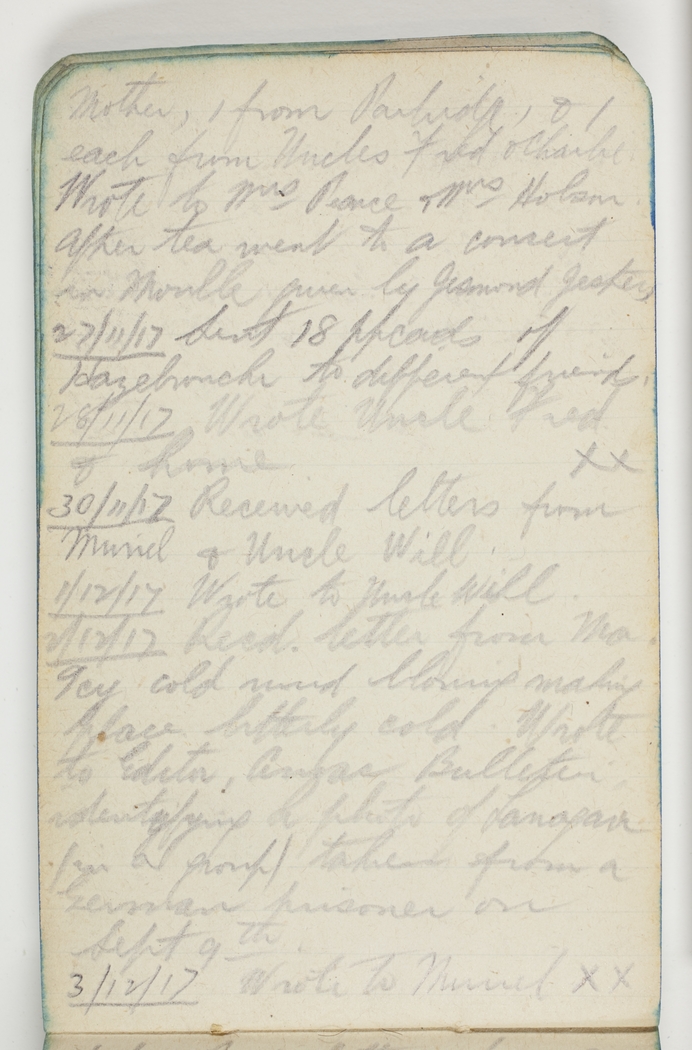 Mother, 1 from Partridge, & 1
each from Uncles Fred & Charlie.
Wrote to Mrs Pearce & Mrs Hobson
After tea went to a concert
in Moulle given by Jesmond Jesters
27/11/17 Sent 18 ppcads of
Hazebrouche to different friends.
28/11/17 Wrote Uncle Fred
& home xx
30/11/17 Received letters from
Muriel & Uncle Will.
1/12/17 Wrote to Uncle Will.
2/12/17 Recd. letter from Ma.
Icy cold wind blowing making
place bitterly cold. Wrote
to Editor, Anzac Bulletin,
identifying a photo of
(in a group) taken from a
German prisoner on
Sept 9th.
3/12/17 Wrote to Muriel xx